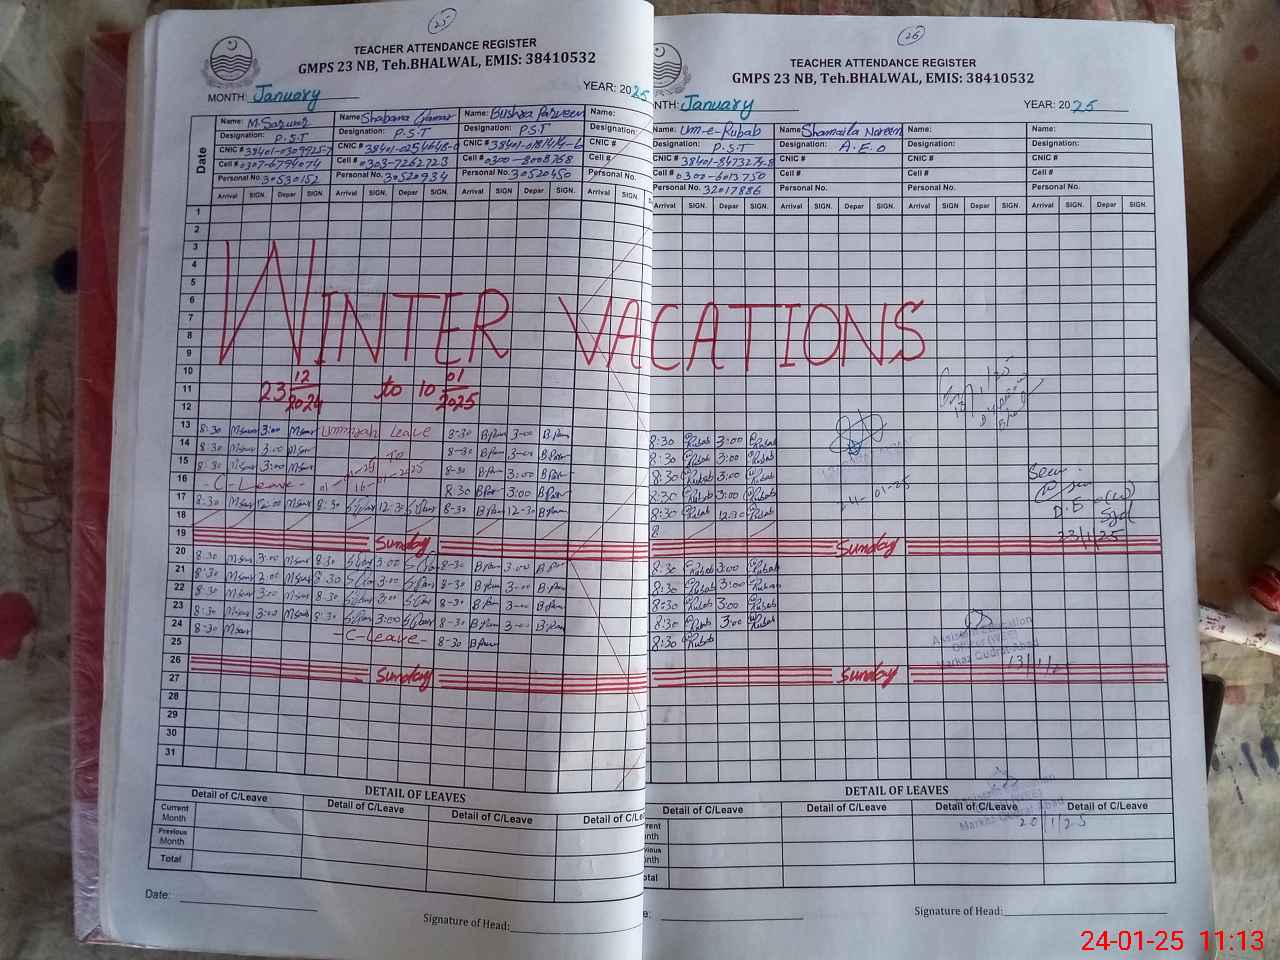 25
TEACHER ATTENDANCE REGISTER
GMPS 23 NB, Teh.BHALWAL, EMIS: 38410532
MONTH: January YEAR: 2025
Date
Name: M.Sarwar Name: Shabana Qamar Name: Bushra Parveen Name:
Designation: P.S.T Designation: P.S.T Designation: P.S.T Designation:
CNIC # CNIC # CNIC # CNIC #
Cell # 0307-6794074 Cell # 0303-7262723 Cell # 0300-8008768 Cell #
Personal No. 30530152 Personal No. 30520934 Personal No. 30520450 Personal No.
Arrival SIGN. Depar SIGN. Arrival SIGN. Depar SIGN. Arrival SIGN. Depar SIGN. Arrival SIGN.
1
2
3
4
5
6
7
8
9
10
11
12
WINTER VACATIONS
23 12/2024 to 10 01/2025
13 8:30 Msar 3:00 Msar Ummrah Leave 8-30 BPar 3-00 BPar
14 8:30 Msar 3:00 Msar TO 8-30 BPar 3:00 BPar
15 8:30 Msar 3:00 Msar 8-30 BPar 3:00 BPar
16 -C-Leave- 8:30 BPar 3:00 BPar
17 8:30 Msar 12:00 Msar 8:30 SQar 12:30 SQar 8-30 BPar 12-30 BPar
18
19 Sunday
20 8:30 Msar 3:00 Msar 8:30 SQar 3:00 SQar 8-30 BPar 3:00 BPar
21 8:30 Msar 3:00 Msar 8:30 SQar 3:00 SQar 8-30 BPar 3:00 BPar
22 8:30 Msar 3:00 Msar 8:30 SQar 3:00 SQar 8-30 BPar 3-00 BPar
23 8:30 Msar 3:00 Msar 8:30 SQar 3:00 SQar 8-30 BPar 3-00 BPar
24 8-30 Msar -C-Leave- 8-30 BPar
25
26 Sunday
27
28
29
30
31
DETAIL OF LEAVES
Detail of C/Leave Detail of C/Leave Detail of C/Leave Detail of C/Le
Current Month
Previous Month
Total
Date:
Signature of Head:
26
TEACHER ATTENDANCE REGISTER
GMPS 23 NB, Teh.BHALWAL, EMIS: 38410532
NTH: January YEAR: 2025
Name: Umm-e-Rubab Name: Shamaila Noreen Name: Name:
Designation: P.S.T Designation: A.E.O Designation: Designation:
CNIC # 38401-8473273-8 CNIC # CNIC # CNIC #
Cell # 0300-6013750 Cell # Cell # Cell #
Personal No. 32017886 Personal No. Personal No. Personal No.
Arrival SIGN. Depar SIGN. Arrival SIGN. Depar SIGN. Arrival SIGN. Depar SIGN. Arrival SIGN. Depar SIGN.
8:30 Rubab 3:00 Rubab
8:30 Rubab 3:00 Rubab
8:30 Rubab 3:00 Rubab
8:30 Rubab 3:00 Rubab
8:30 Rubab 12:30 Rubab
24-01-25
Seen
23/1/25
Sunday
8:30 Rubab 3:00 Rubab
8:30 Rubab 3:00 Rubab
8:30 Rubab 3:00 Rubab
8:30 Rubab 3:00 Rubab
8:30 Rubab
Assistant Education
Markaz Qudrat Abad
13/1/25
Sunday
DETAIL OF LEAVES
Detail of C/Leave Detail of C/Leave Detail of C/Leave Detail of C/Leave
Markaz Qudrat Abad
20/1/25
Signature of Head:
24-01-25 11:13